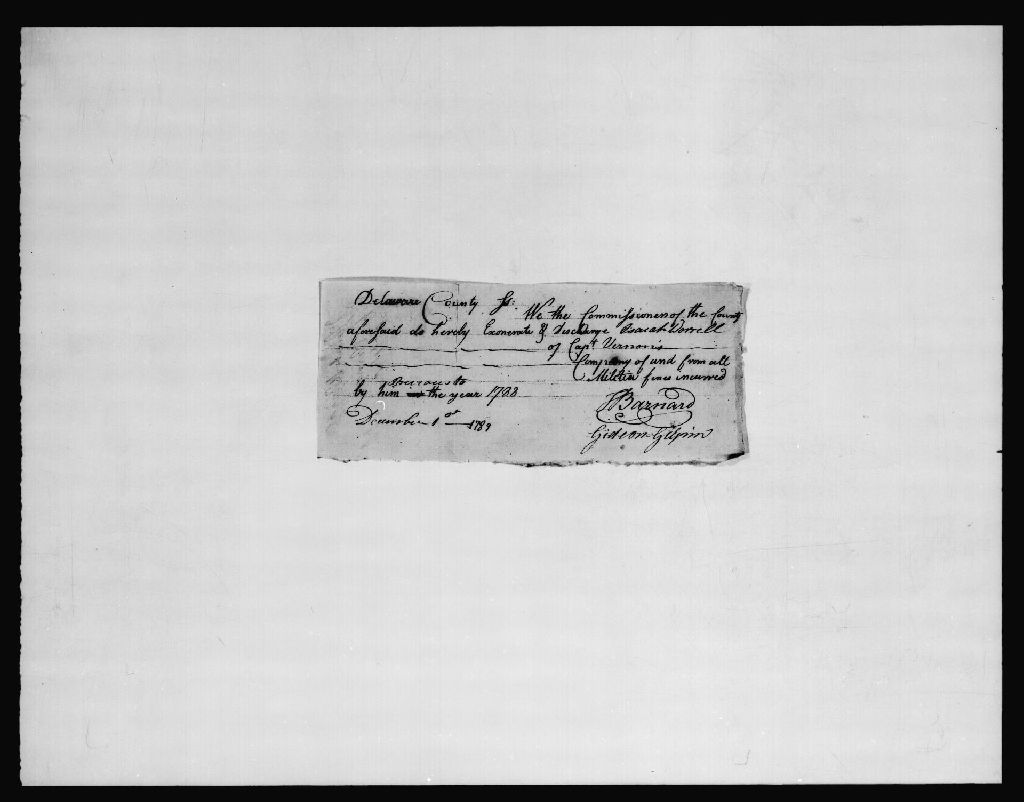 Delaware County Ss:
We the Commissioners of the County
aforesaid do hereby Exonerate & Discharge Isaiah Worrell
of Capt Vernon's
Company of and from all
Militia fines incurred
previous to
by him the year 1788
December 1st 1789
Barnard
Gideon Gilpin